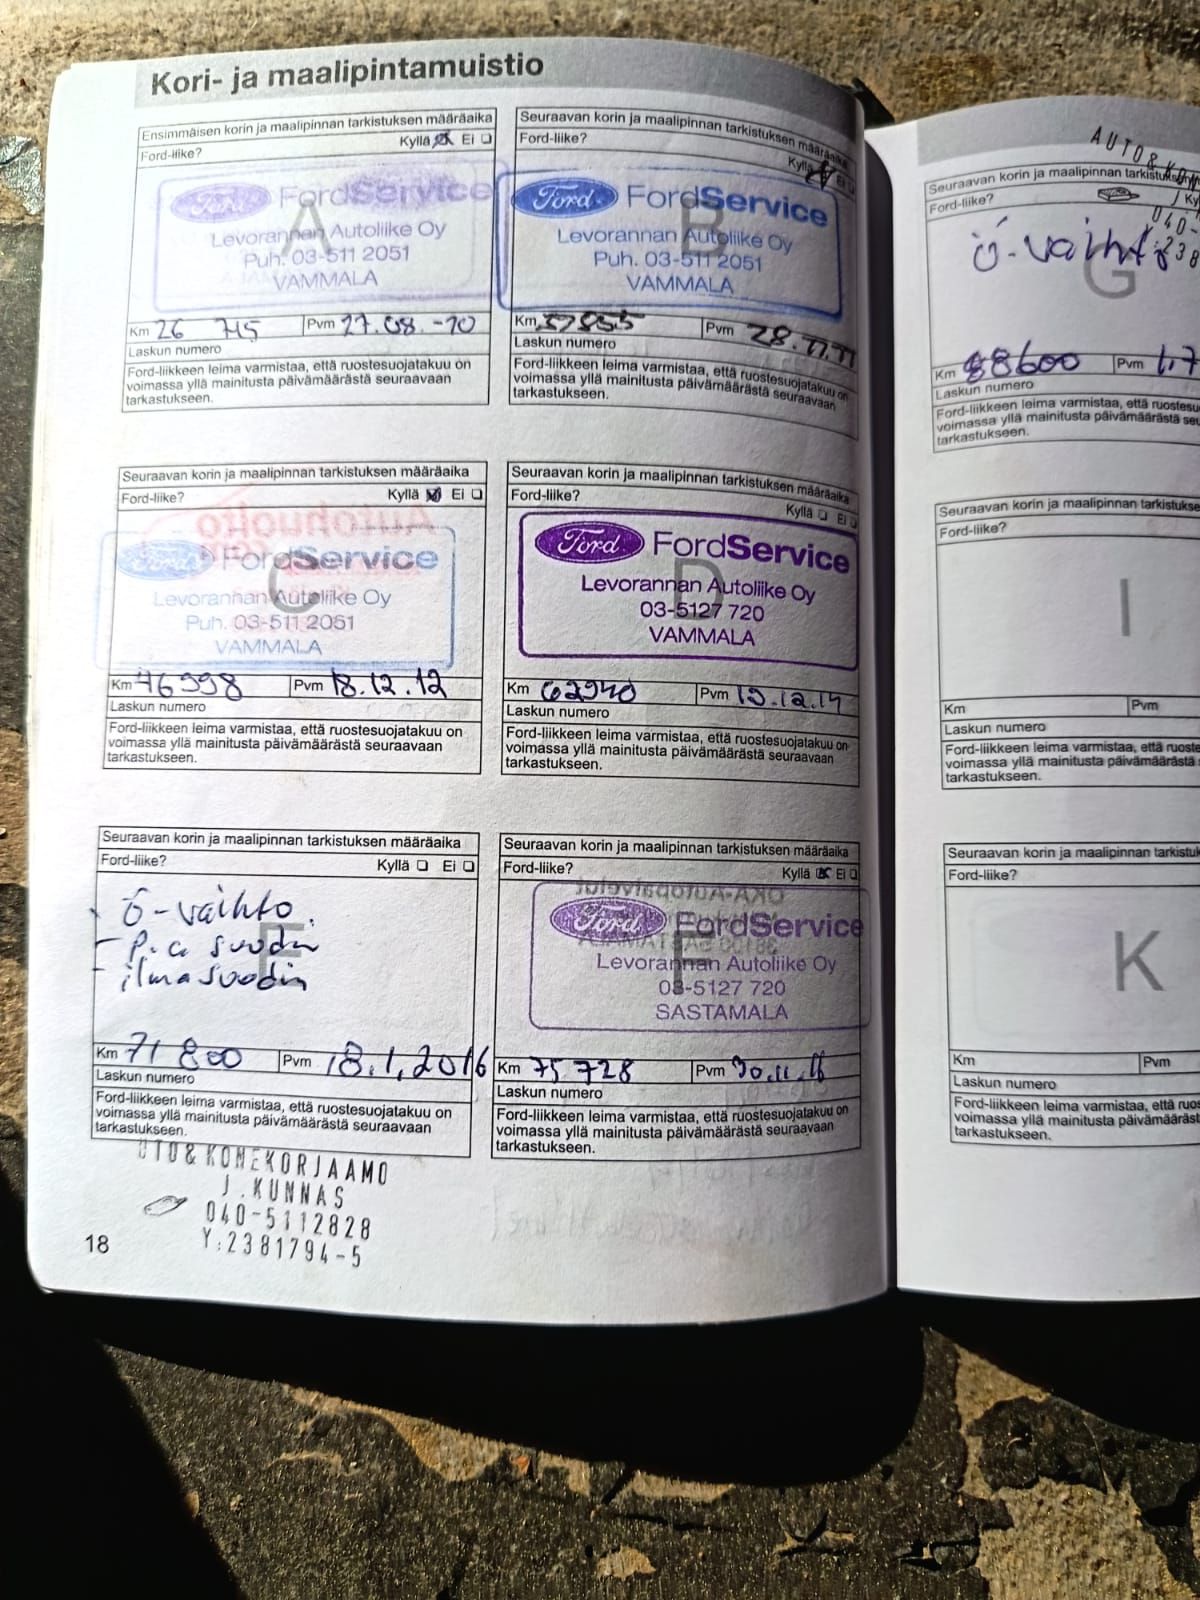 Kori- ja maalipintamuistio
Ensimmäisen korin ja maalipinnan tarkistuksen määräaika
Ford-liike?
Kyllä Ei
Ford FordService
A
Levorannan Autoliike Oy
Puh. 03-511 2051
VAMMALA
Km 26 715 Pvm 27.08.-10
Laskun numero
Ford-liikkeen leima varmistaa, että ruostesuojatakuu on
voimassa yllä mainitusta päivämäärästä seuraavaan
tarkastukseen.
Seuraavan korin ja maalipinnan tarkistuksen määräaika
Ford-liike?
Kyllä Ei
Ford FordService
B
Levorannan Autoliike Oy
Puh. 03-511 2051
VAMMALA
Km Pvm 28.11.11
Laskun numero
Ford-liikkeen leima varmistaa, että ruostesuojatakuu on
voimassa yllä mainitusta päivämäärästä seuraavaan
tarkastukseen.
Seuraavan korin ja maalipinnan tarkistuksen määräaika
Ford-liike?
Kyllä Ei
Autohuolto
Ford FordService
C
Levorannan Autoliike Oy
Puh. 03-511 2051
VAMMALA
Km 46998 Pvm 18.12.12
Laskun numero
Ford-liikkeen leima varmistaa, että ruostesuojatakuu on
voimassa yllä mainitusta päivämäärästä seuraavaan
tarkastukseen.
Seuraavan korin ja maalipinnan tarkistuksen määräaika
Ford-liike?
Kyllä Ei
Ford FordService
D
Levorannan Autoliike Oy
03-5127 720
VAMMALA
Km 62940 Pvm
Laskun numero
Ford-liikkeen leima varmistaa, että ruostesuojatakuu on
voimassa yllä mainitusta päivämäärästä seuraavaan
tarkastukseen.
Seuraavan korin ja maalipinnan tarkistuksen määräaika
Ford-liike?
Kyllä Ei
- ö-vaihto.
- p.a suodin
- ilmasuodin
E
Km 71 800 Pvm 18.1.2016
Laskun numero
Ford-liikkeen leima varmistaa, että ruostesuojatakuu on
voimassa yllä mainitusta päivämäärästä seuraavaan
tarkastukseen.
UTO & KONEKORJAAMO
J.KUNNAS
040-5112828
Y:2381794-5
Seuraavan korin ja maalipinnan tarkistuksen määräaika
Ford-liike?
Kyllä Ei
OKA-Autopalvelut
Ford FordService
F
Levorannan Autoliike Oy
03-5127 720
SASTAMALA
Km 75 728 Pvm 30.11.16
Laskun numero
Ford-liikkeen leima varmistaa, että ruostesuojatakuu on
voimassa yllä mainitusta päivämäärästä seuraavaan
tarkastukseen.
18
AUTO & KON
Seuraavan korin ja maalipinnan tarkistuk
Ford-liike?
J Ky
040-
Y:238
ö-vaihto
G
Km 88600 Pvm 1.7
Laskun numero
Ford-liikkeen leima varmistaa, että ruostesu
voimassa yllä mainitusta päivämäärästä seu
tarkastukseen.
Seuraavan korin ja maalipinnan tarkistukse
Ford-liike?
I
Km Pvm
Laskun numero
Ford-liikkeen leima varmistaa, että ruoste
voimassa yllä mainitusta päivämäärästä
tarkastukseen.
Seuraavan korin ja maalipinnan tarkistuk
Ford-liike?
K
Km Pvm
Laskun numero
Ford-liikkeen leima varmistaa, että ruos
voimassa yllä mainitusta päivämäärästä
tarkastukseen.